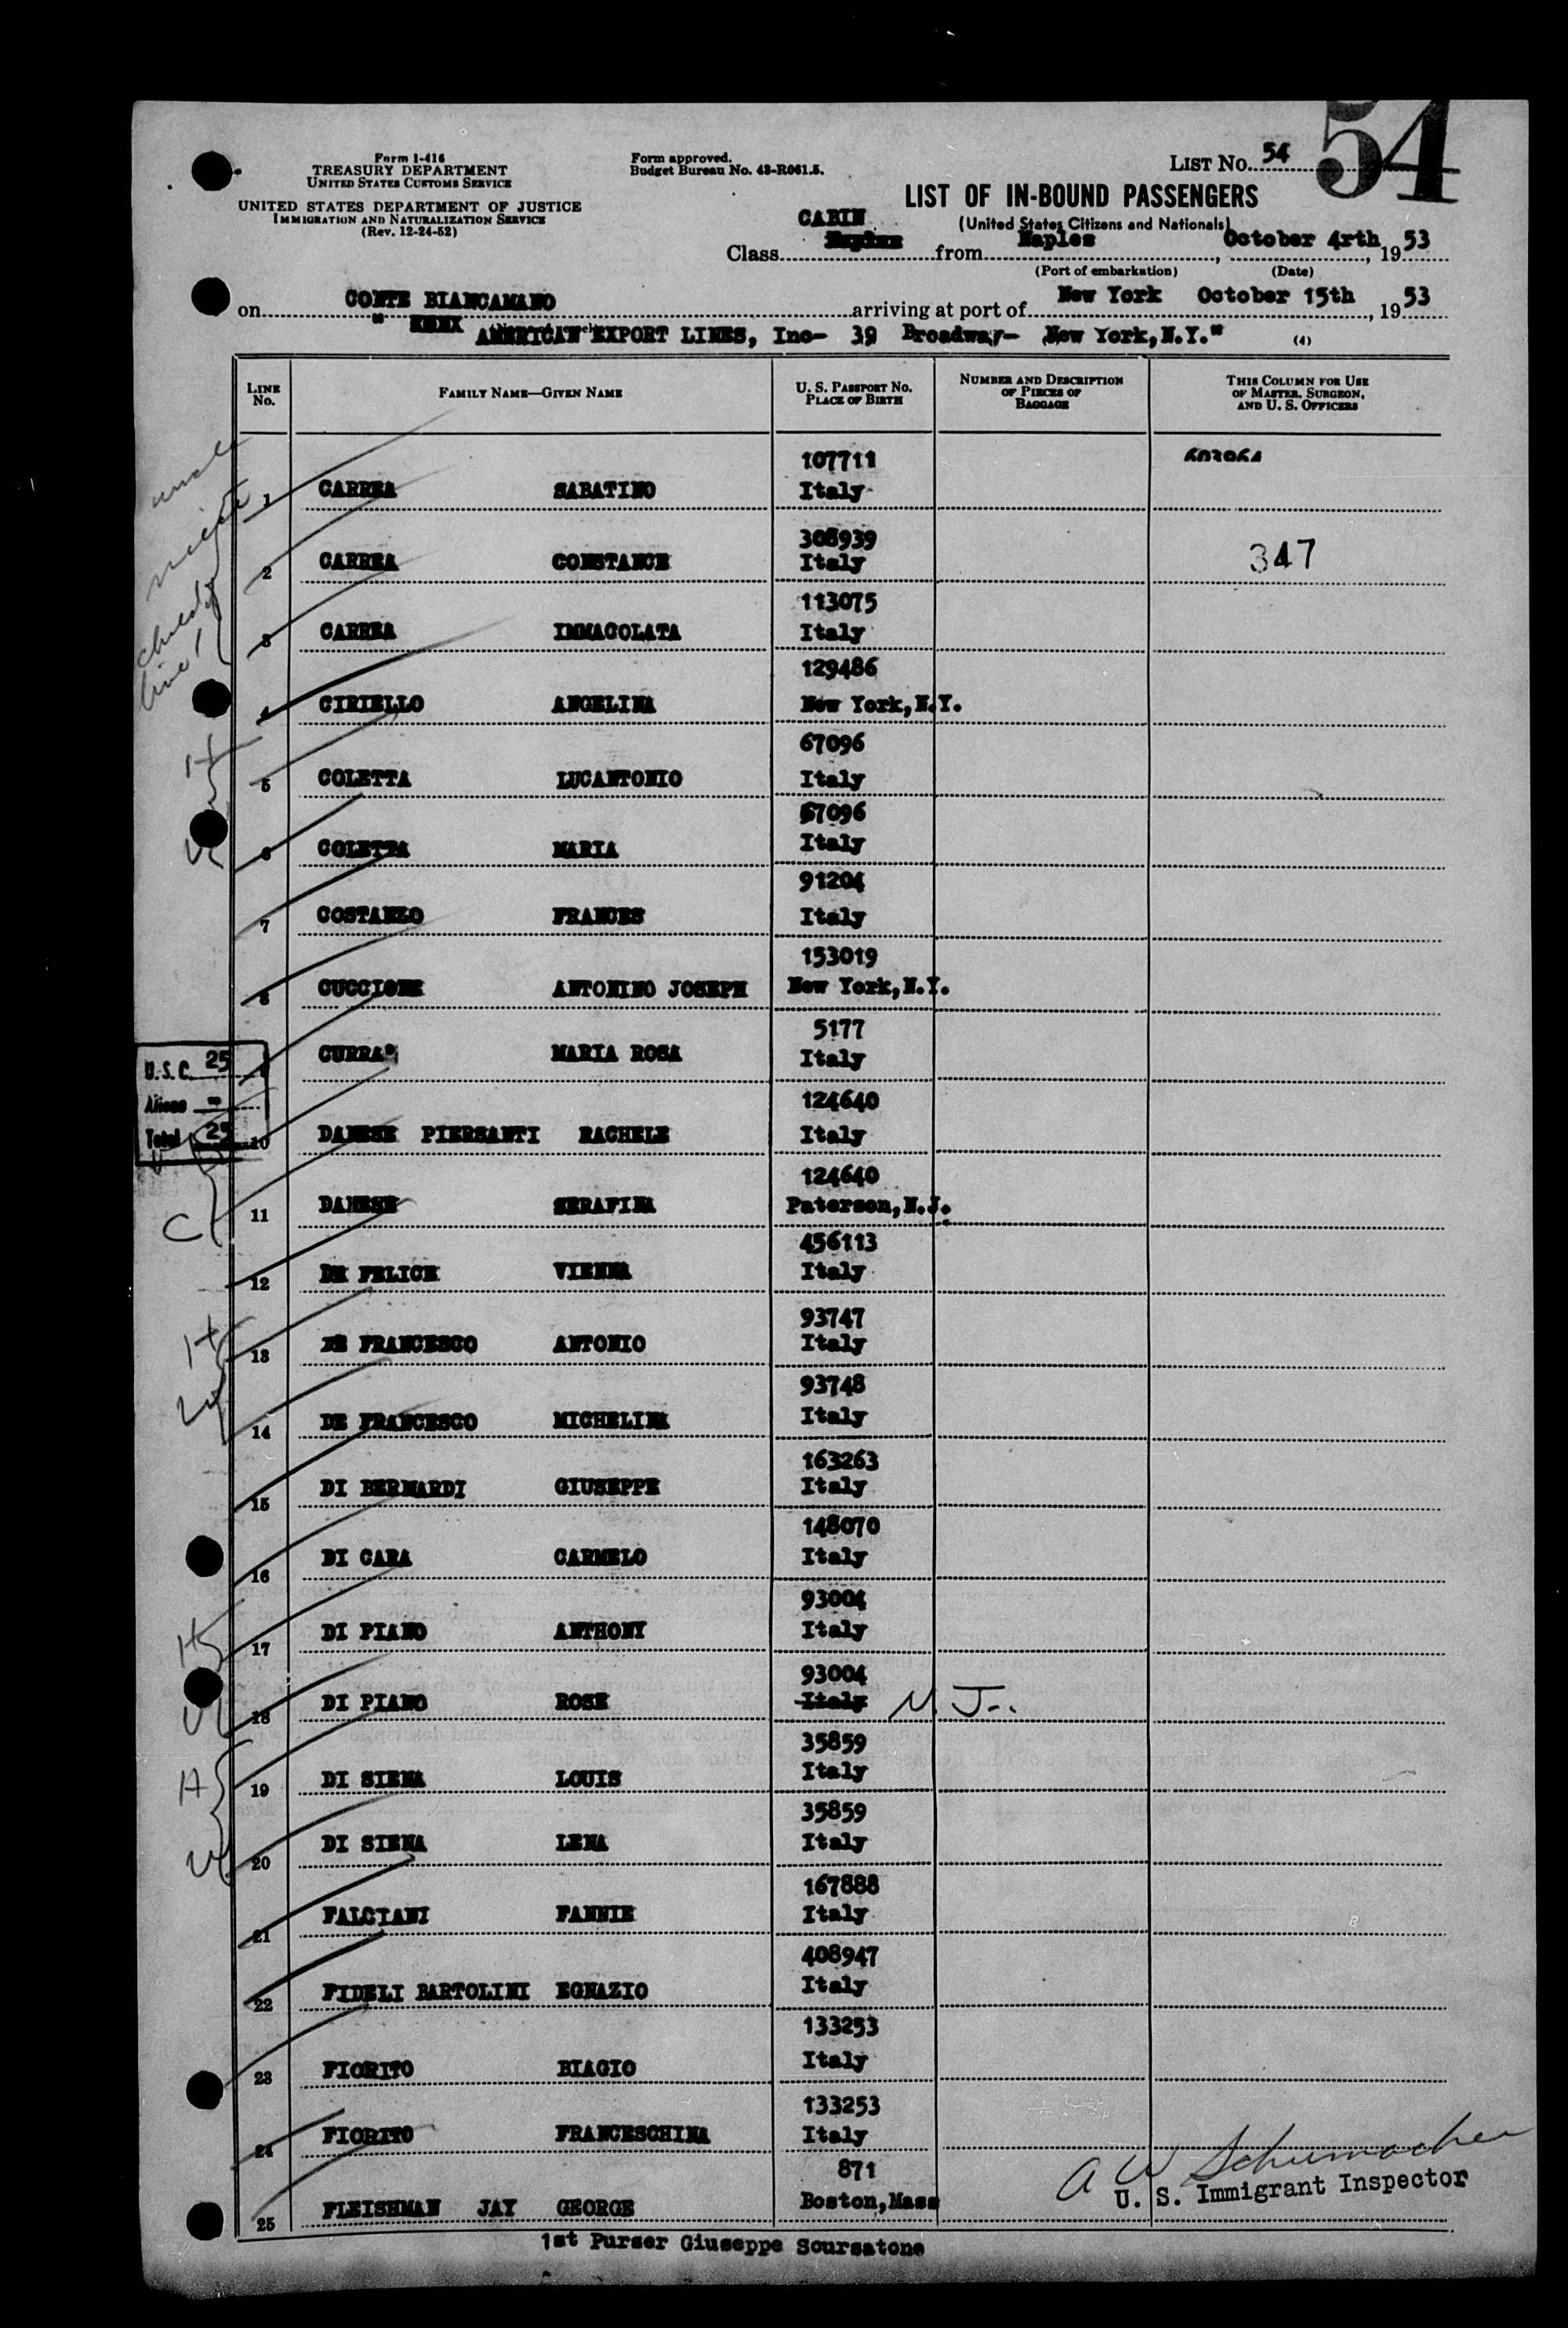 54
Form I-416
TREASURY DEPARTMENT
UNITED STATES CUSTOMS SERVICE
UNITED STATES DEPARTMENT OF JUSTICE
IMMIGRATION AND NATURALIZATION SERVICE
(Rev. 12-24-52)
Form approved.
Budget Bureau No. 43-R061.5.
LIST No. 54
LIST OF IN-BOUND PASSENGERS
(United States Citizens and Nationals)
CABIN
Class from Naples, October 4rth, 1953
(Port of embarkation) (Date)
on CONTE BIANCAMANO arriving at port of New York October 15th, 1953
" AMERICAN EXPORT LINES, Inc- 39 Broadway- New York, N.Y." (4)
LINE No. FAMILY NAME—GIVEN NAME U. S. PASSPORT No. PLACE OF BIRTH NUMBER AND DESCRIPTION OF PIECES OF BAGGAGE THIS COLUMN FOR USE OF MASTER, SURGEON, AND U. S. OFFICERS
107711
1 CARREA SABATINO Italy
308939
2 CARREA CONSTANCE Italy 347
113075
3 CARREA IMMACOLATA Italy
129486
4 CIRIELLO ANGELINA New York, N.Y.
67096
5 COLETTA LUCANTONIO Italy
67096
6 COLETTA MARIA Italy
91204
7 COSTANZO FRANCES Italy
153019
8 CUCCIONE ANTONINO JOSEPH New York, N.Y.
5177
9 CURRA' MARIA ROSA Italy
U.S.C. 25
Aliens -
Total 25
124640
10 DANESE PIERSANTI RACHELE Italy
124640
11 DANESE SERAFINA Paterson, N.J.
456113
12 DE FELICE VIENNA Italy
93747
13 DE FRANCESCO ANTONIO Italy
93748
14 DE FRANCESCO MICHELINA Italy
163263
15 DI BERNARDI GIUSEPPE Italy
148070
16 DI CARA CARMELO Italy
93004
17 DI PIANO ANTHONY Italy
93004
18 DI PIANO ROSE Italy N. J.
35859
19 DI SIENA LOUIS Italy
35859
20 DI SIENA LENA Italy
167888
21 FALCIANI FANNIE Italy
408947
22 FIDELI BARTOLINI EGNAZIO Italy
133253
23 FIORITO BIAGIO Italy
133253
24 FIORITO FRANCESCHINA Italy
871
25 FLEISHMAN JAY GEORGE Boston, Mass
A W Schumacher
U. S. Immigrant Inspector
1st Purser Giuseppe Scursatone